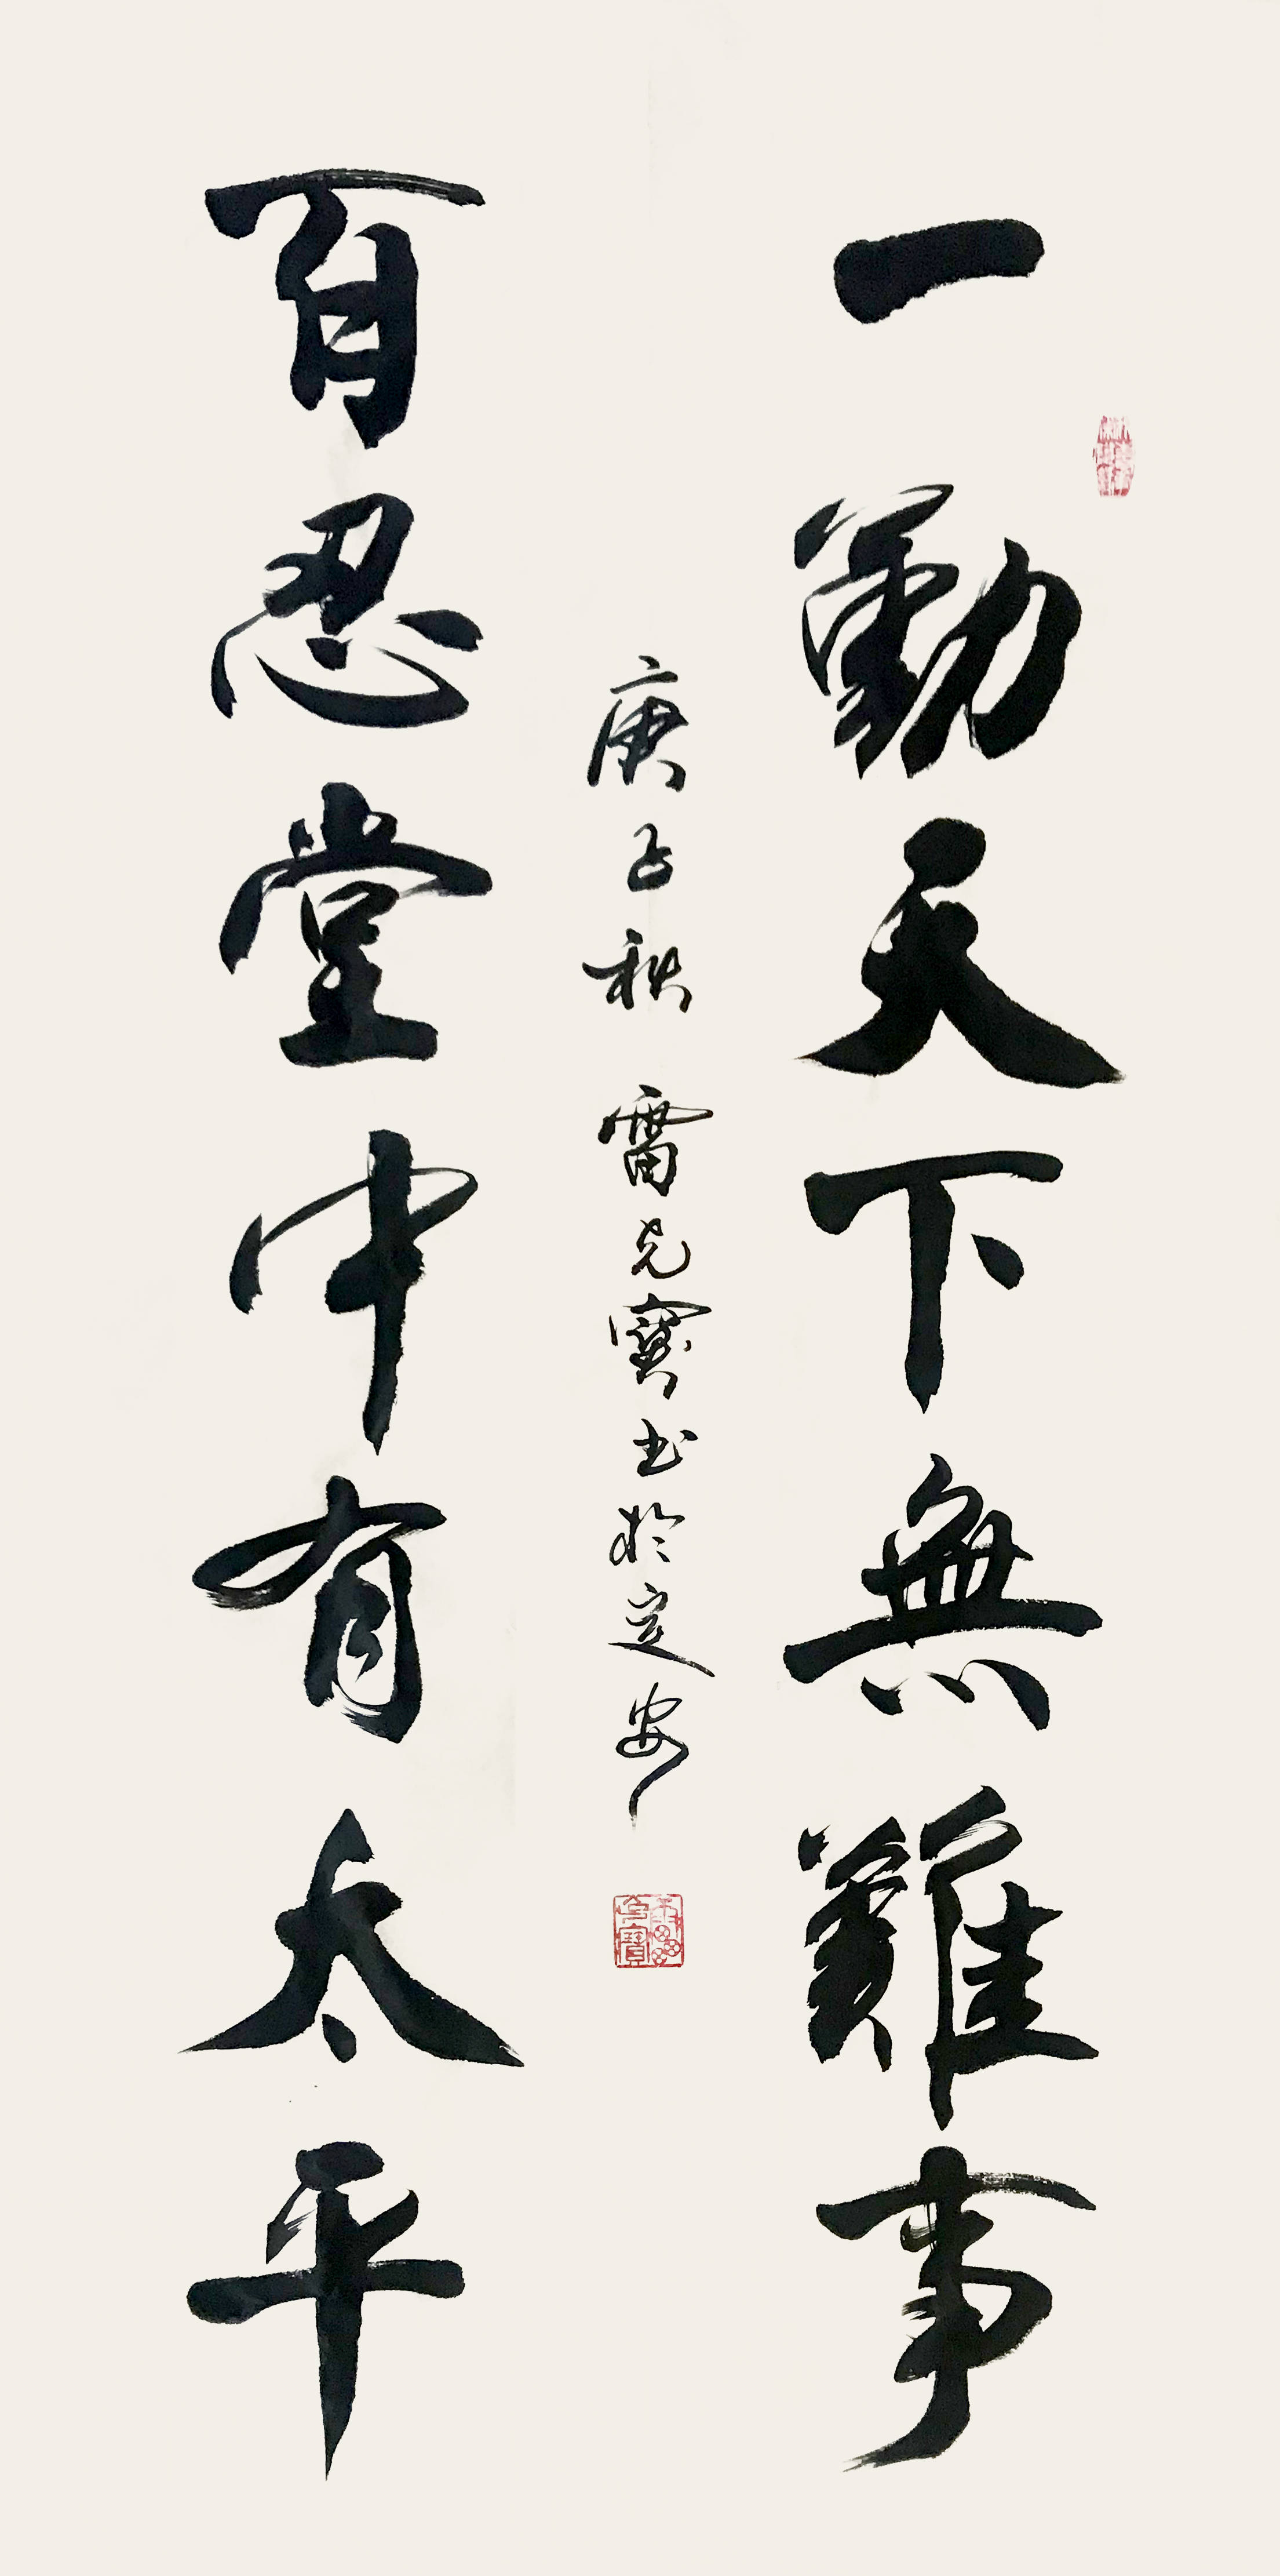 一勤天下無難事
百忍堂中有太平
庚子秋 雷光寶书於定安